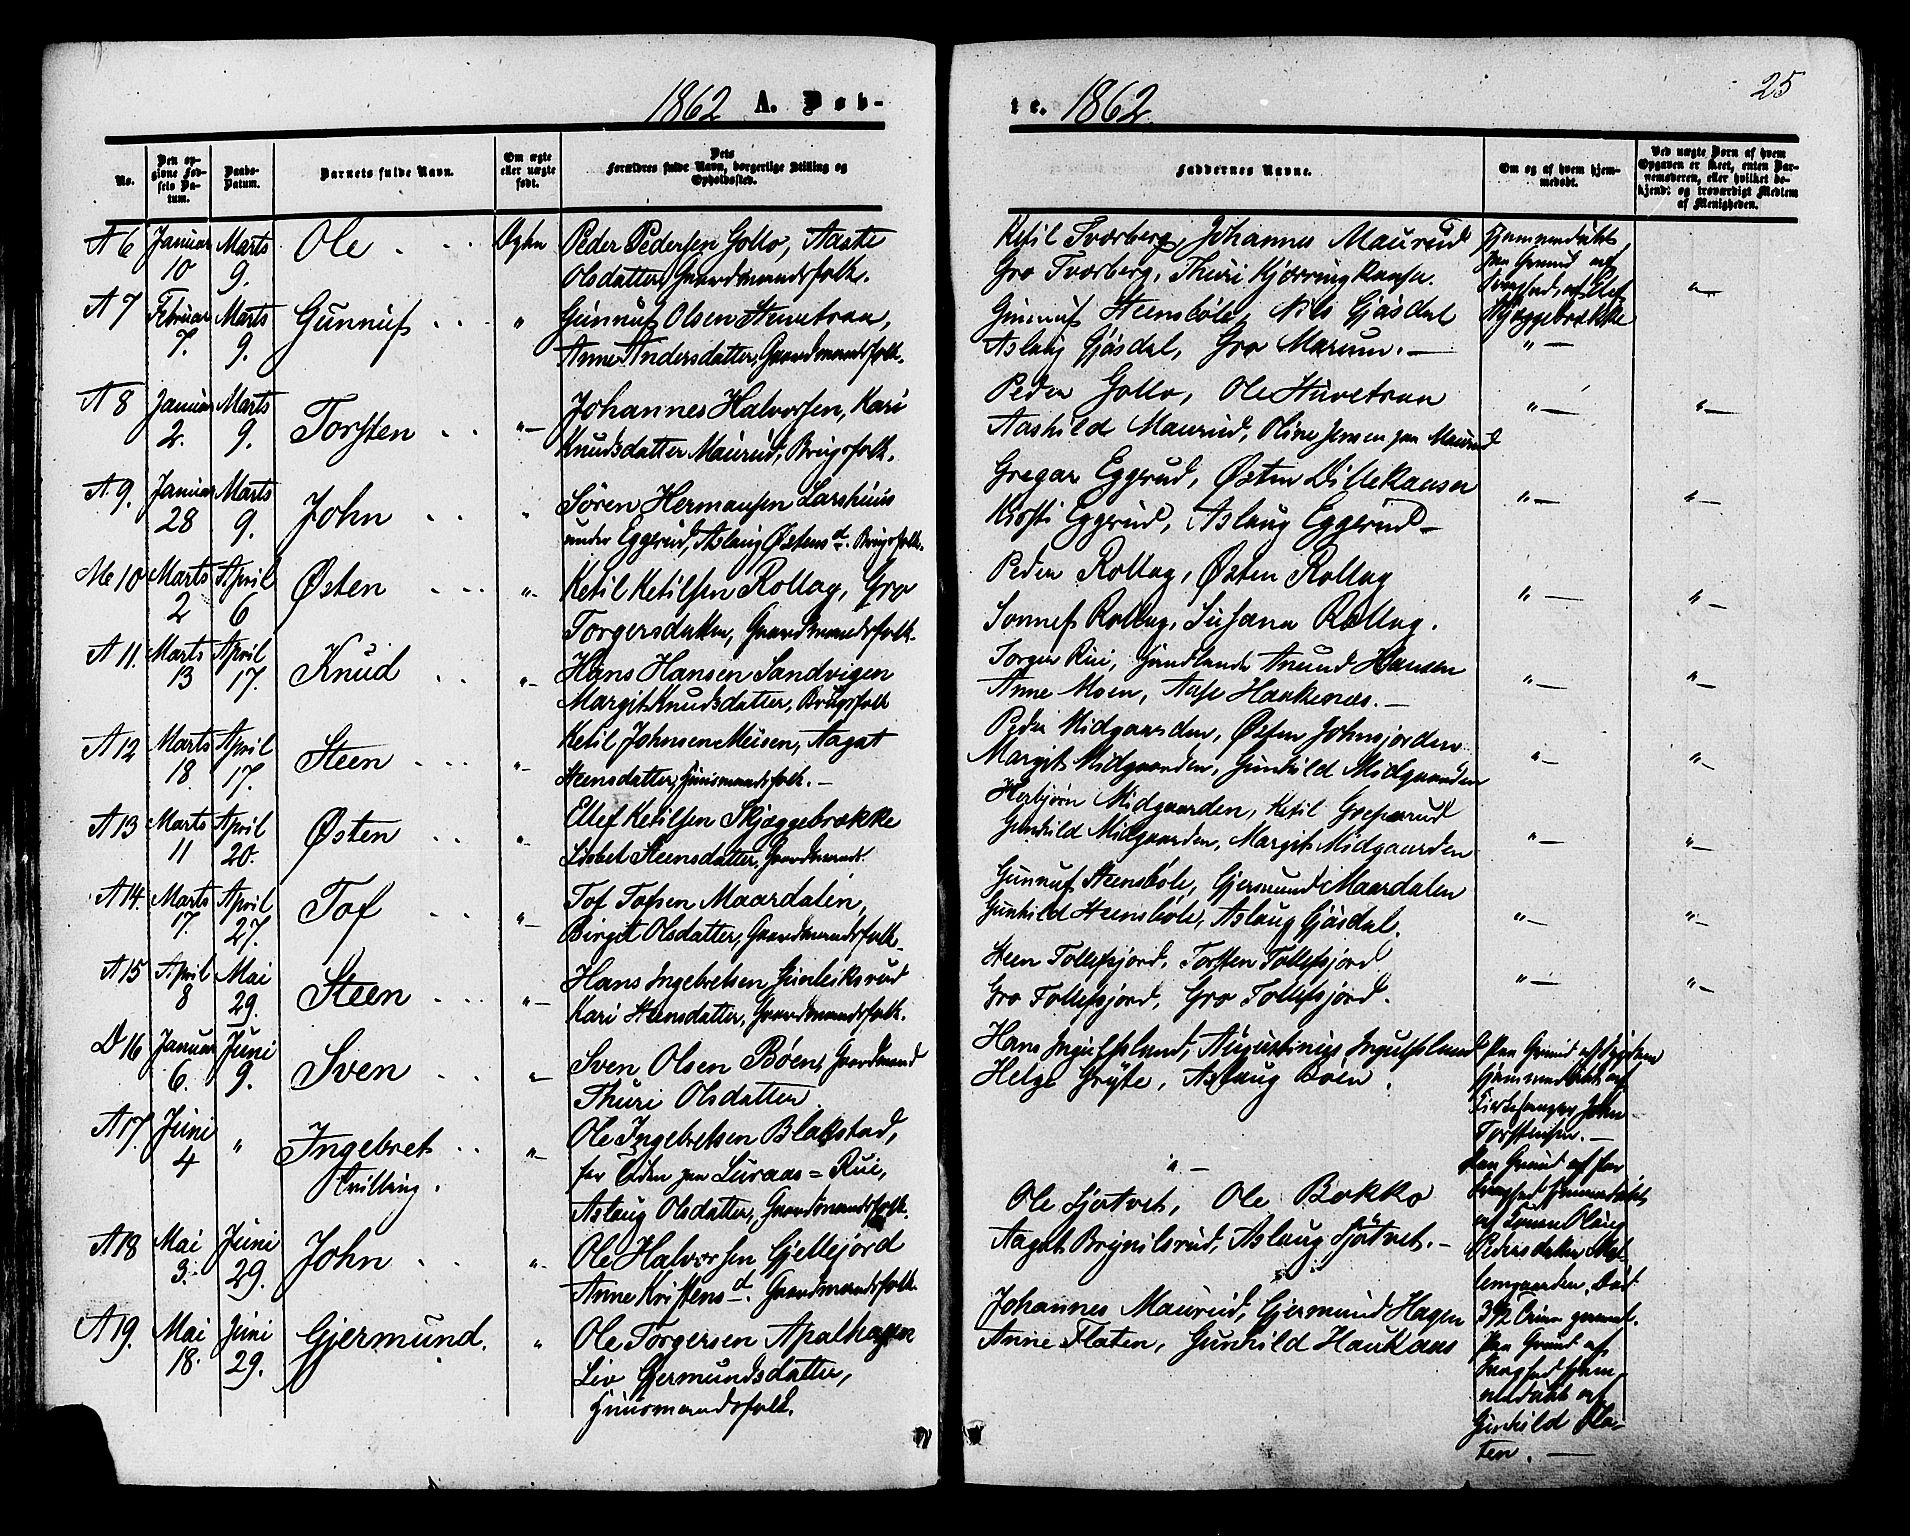 1862 A. Døb-
No.
Den opgivne Fødsels Datum.
Daabs-Datum.
Barnets fulde Navn.
Om ægte eller uægte født.
Dets Forældres fulde Navn, borgerlige Stilling og Opholdssted.
A 6 Januar 10 Marts 9. Ole Ægte Peder Pedersen Gollo, Aaste
Olsdatter, Gaardmandsfolk.
A 7 Februar 7. Marts 9. Gunnuf " Gunnuf Olsen
Anne Andersdatter, Gaardmandsfolk.
A 8 Januar 2. Marts 9. Torsten "- Johannes Halvorsen, Kari
Knudsdatter Maurud, Brugsfolk.
A 9. Januar 28 Marts 9. John " Sören Hermansen Larshuus
under Eggerud, Aslaug Østens d. Brugsfolk.
10 Marts 2 April 6 Østen "- Ketil Ketilsen Rollag, Gro
Torgersdatter, Gaardmandsfolk.
A 11. Marts 13 April 17. Knud "- Hans Hansen Sandvigen
Margit Knudsdatter, Brugsfolk
A 12 Marts 18. April 17. Steen "- Ketil Johnsen Meisen, Aagat
Steensdatter, Huusmandsfolk. –
A 13 Marts 11 April 20. Østen "- Ellef Ketilsen Skjæggebrække
Lisbet Steensdatter, Gaardmands.
A 14. Marts 17. April 27. Tof "- Tof Tofsen Maardalen,
Birgit Olsdatter, Gaardmandsfolk
A 15 April 8 Mai 29. Steen "- Hans Ingebretsen Gunleiksrud
Kari Steensdatter, Gaardmandsfolk.
D 16 Januar 6. Juni 9. Sven "- Sven Olsen Böen, Gaardmand
Thuri Olsdatter
A 17. Juni 4 " Ingebret "- Ole Ingebretsen Blakstad,
Tvilling. før Tiden paa Luraas = Rui,
Aslaug Olsdatter, Gaardmandsfolk.
A 18 Mai 3. Juni 29. John "- Ole Halvorsen Gjellejord
Anne Kristens d. Gaardmandsfolk
A 19. Mai 18. Juni 29. Gjermund. " Ole Torgersen Apalhagen
Liv Gjermundsdatter,
Huusmandsfolk.
te. 1862.
25
Faddernes Navne.
Om og af hvem hjemmedøbt.
Ved uægte Børn af hvem Opgaven er skeet, enten Barnemoderen, eller hvilket bekjendt og troværdigt Medlem af Menigheden.
Ketil Tvørberg, Johannes Maurud
Gro Tvørberg, Thuri
Hjemmedøbt,
paa Grund af
Svaghed af Ellef
Skjæggebrække
Gunnuf Steensböle, Nils Gjösdal
Aslaug Gjösdal, Gro Marum. –
Peder Gollo, Ole
Aashild Maurud, Oline Jensen paa Maurud
Gregar Eggerud, Østen
Kirsti Eggerud, Aslaug Eggerud –
Peder Rollag, Østen Rollag
Sonnef Rollag, Susana Rollag.
Torger Rui, Anund Hansen
Anne Moen, Aase Haakenæs. –
Peder Midgaarden, Østen Johnsjorden
Margit Midgaarden, Gunhild Midgaarden
Herbjörn Midgaarden, Ketil
Gunhild Midgaarden, Margit Midgaarden
Gunnuf Steensböle, Gjermund Maardalen
Gunhild Steensböle, Aslaug Gjösdal.
Steen Tollefsjord, Torsten Tollefsjord
Gro Tollefsjord, Gro Tollefsjord.
Hans Ingulfsland, Augustinus Ingulfsland
Helge Gröte, Aslaug Böen.
Paa Grund af Sygdom
hjemmedøbt af
Kirkesanger John
Torstensen. –
"–
Paa Grund af for
Svaghed hjemmedøbt
af
Pedersdatter
Død
3½ Time gammel.
Ole Sjotvet, Ole Bokko
Aagat Brynilsrud, Aslaug Sjötvet. –
Johannes Maurud, Gjermund Hagen
Anne Flaten, Gunhild Haukaas
Paa Grund af
Svaghed hjem-
medøbt af
Gunhild Fla-
ten. –